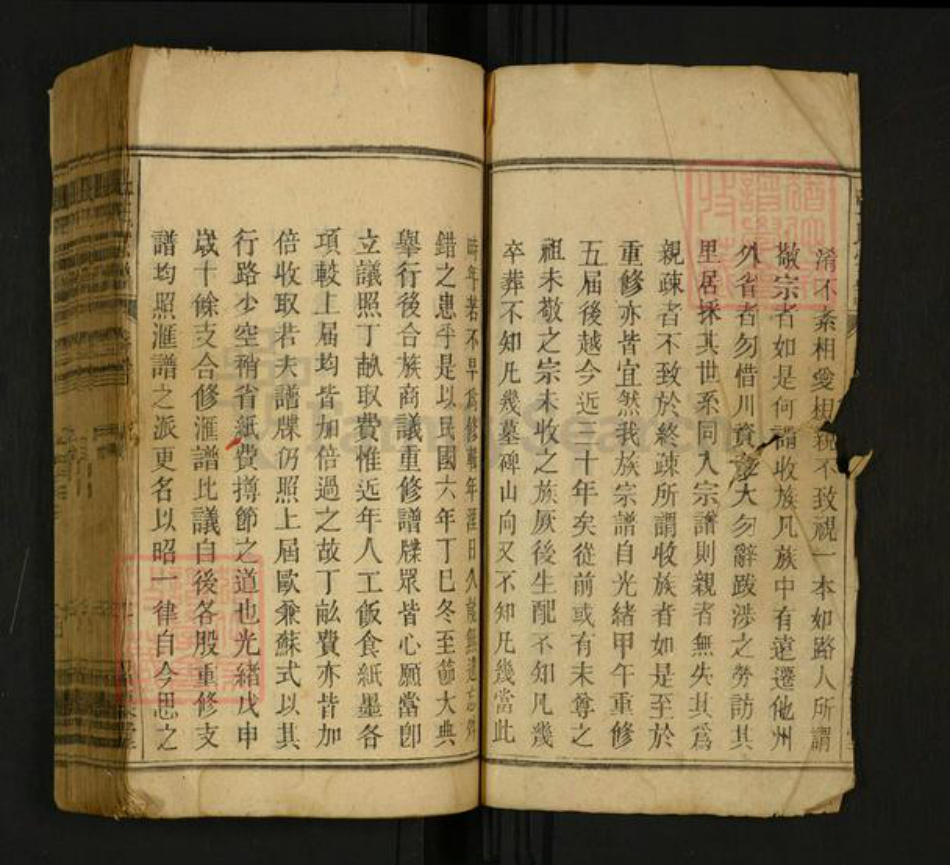 淆不紊相愛相親不致視一本如路人所謂
敬宗者如是何謂收族凡族中有遠遷他州
外省者勿惜川資大勿辭跋涉之勞訪其
里居採其世系同入宗譜則親者無失其爲
親疎者不致於終疎所謂收族者如是至於
重修亦皆宜然我族宗譜自光緒甲午重修
五屆後越今近三十年矣從前或有未尊之
祖未敬之宗未收之族厥後生配不知凡幾
卒葬不知凡幾墓碑山向又不知凡幾當此
時年若不早爲修輯年湮日久能無遺忘
錯之患乎是以民國六年丁巳冬至節大典
舉行後合族商議重修譜牒眾皆心願當卽
立議照丁畝取費惟近年人工飯食紙墨各
項較上屆均皆加倍過之故丁畝費亦皆加
倍收取若夫譜牒仍照上屆歐兼蘇式以其
行路少空稍省紙費撙節之道也光緒戊申
歲十餘支合修滙譜比議自後各股重修支
譜均照滙譜之派更名以昭一律自今思之